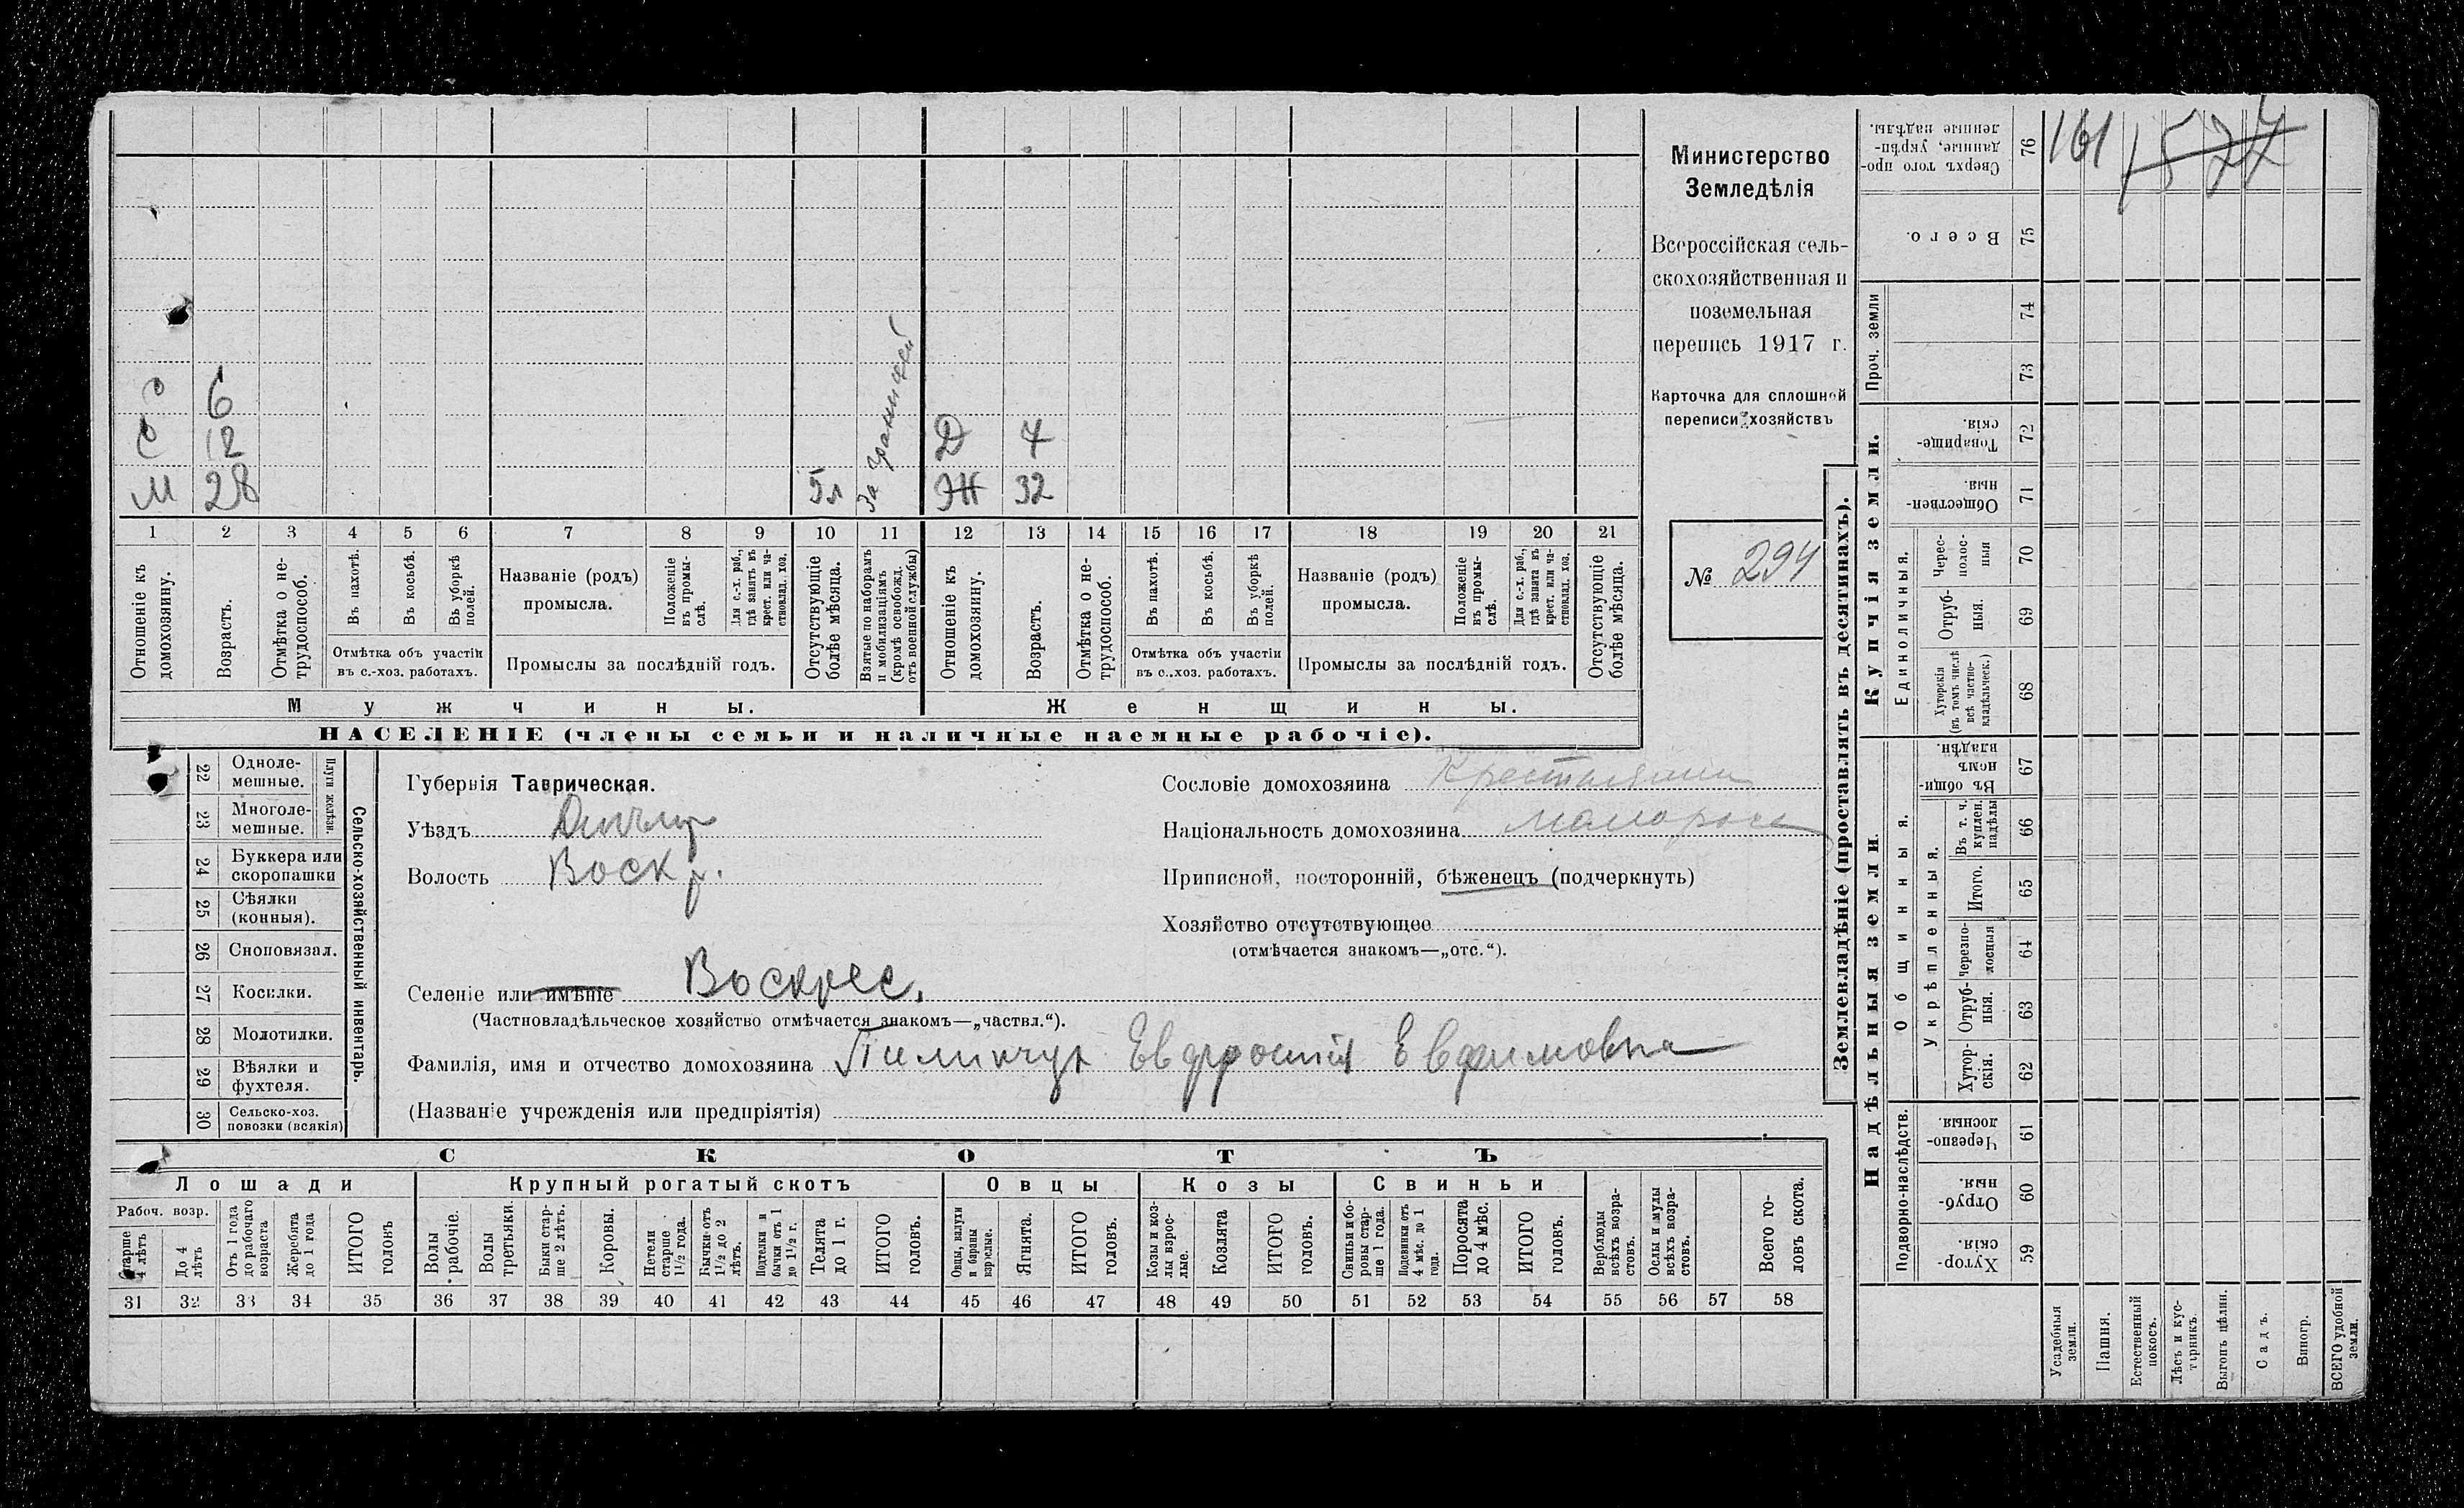 Министерство
Земледѣлія
Всероссійская сель-
скохозяйственная и
поземельная
перепись 1917 г.
Карточка для сплошной
переписи хозяйствъ
№ 294
С 6
С 12 Д 7
М 28 5л За границей Ж 32
1 2 3 4 5 6 7 8 9 10 11 12 13 14 15 16 17 18 19 20 21
Отношеніе къ домохозяину.
Возрастъ.
Отмѣтка о не-трудоспособ.
Въ пахотѣ.
Въ косьбѣ.
Въ уборкѣ полей.
Отмѣтка объ участіи
въ с.-хоз. работахъ.
Названіе (родъ)
промысла.
Положеніе въ промы-слѣ.
Для с.-х. раб., гдѣ занятъ въ крест. или ча-стновлад. хоз.
Промыслы за послѣдній годъ.
Отсутствующіе болѣе мѣсяца.
Взятые по наборамъ и мобилизаціямъ (кромѣ освобожд. отъ военной службы)
Отношеніе къ домохозяину.
Возрастъ.
Отмѣтка о не-трудоспособ.
Въ пахотѣ.
Въ косьбѣ.
Въ уборкѣ полей.
Отмѣтка объ участіи
въ с..хоз. работахъ.
Названіе (родъ)
промысла.
Положеніе въ промы-слѣ.
Для с.-х. раб., гдѣ занята въ крест. или ча-стновлад. хоз.
Промыслы за послѣдній годъ.
Отсутствующіе болѣе мѣсяца.
Мужчины. Женщины.
НАСЕЛЕНІЕ (члены семьи и наличные наемные рабочіе).
22 Одноле-мешные.
23 Многоле-мешные.
Плуги желѣзн.
24 Буккера или скоропашки
25 Сѣялки (конныя).
26 Сноповязал.
27 Косилки.
28 Молотилки.
29 Вѣялки и фухтеля.
30 Сельско-хоз. повозки (всякія)
Сельско-хозяйственный инвентарь.
Губернія Таврическая.
Уѣздъ
Волость Воскр.
Селеніе или имѣніе Воскрес.
(Частновладѣльческое хозяйство отмѣчается знакомъ—„частвл.“).
Фамилія, имя и отчество домохозяина Пилипчук Евфросинія Евфимовна
(Названіе учрежденія или предпріятія)
Сословіе домохозяина Крестьянин
Національность домохозяина малоросс
Приписной, посторонній, бѣженецъ (подчеркнуть)
Хозяйство отсутствующее
(отмѣчается знакомъ—„отс.“).
СКОТЪ
Лошади Крупный рогатый скотъ Овцы Козы Свиньи
Рабоч. возр.
Старше 4 лѣтъ
До 4 лѣтъ
Отъ 1 года до рабочаго возраста
Жеребята до 1 года
ИТОГО головъ
Волы рабочіе.
Волы третьяки.
Быки стар-ше 2 лѣтъ.
Коровы.
Нетели старше 1½ года.
Бычки отъ 1½ до 2 лѣтъ.
Подтелки и бычки отъ 1 до 1½ г.
Телята до 1 г.
ИТОГО головъ.
Овцы, валухи и бараны взрослые.
Ягнята.
ИТОГО головъ.
Козы и коз-лы взрос-лые.
Козлята
ИТОГО головъ.
Свиньи и бо-ровы стар-ше 1 года.
Подсвинки отъ 4 мѣс. до 1 года.
Поросята до 4 мѣс.
ИТОГО головъ.
Верблюды всѣхъ возра-стовъ.
Ослы и мулы всѣхъ возра-стовъ.
Всего го-ловъ скота.
31 32 33 34 35 36 37 38 39 40 41 42 43 44 45 46 47 48 49 50 51 52 53 54 55 56 57 58
Землевладѣніе (проставлять въ десятинахъ).
Купчія земли.
Надѣльныя земли.
Сверхъ того про-данные, укрѣп-ленные надѣлы. 76 161 1527
Всего. 75
Проч. земли 74
73
Товарище-скія. 72
Обществен-ныя. 71
Единоличныя.
Черес-полос-ныя 70
Отруб-ныя. 69
Хуторскія (въ томъ числѣ всѣ частно-владѣльческ.) 68
Общинныя.
Въ общин-номъ владѣн. 67
Укрѣпленныя.
Въ т. ч. куплен. надѣлы 66
Итого. 65
черезпо-лосныя 64
Отруб-ныя. 63
Хутор-скія. 62
Подворно-наслѣдств.
Черезпо-лосныя. 61
Отруб-ныя. 60
Хутор-скія. 59
Усадебныя земли.
Пашня.
Естественный покосъ.
Лѣсъ и кус-тарникъ.
Выгонъ цѣлин.
Садъ.
Виногр.
ВСЕГО удобной земли.